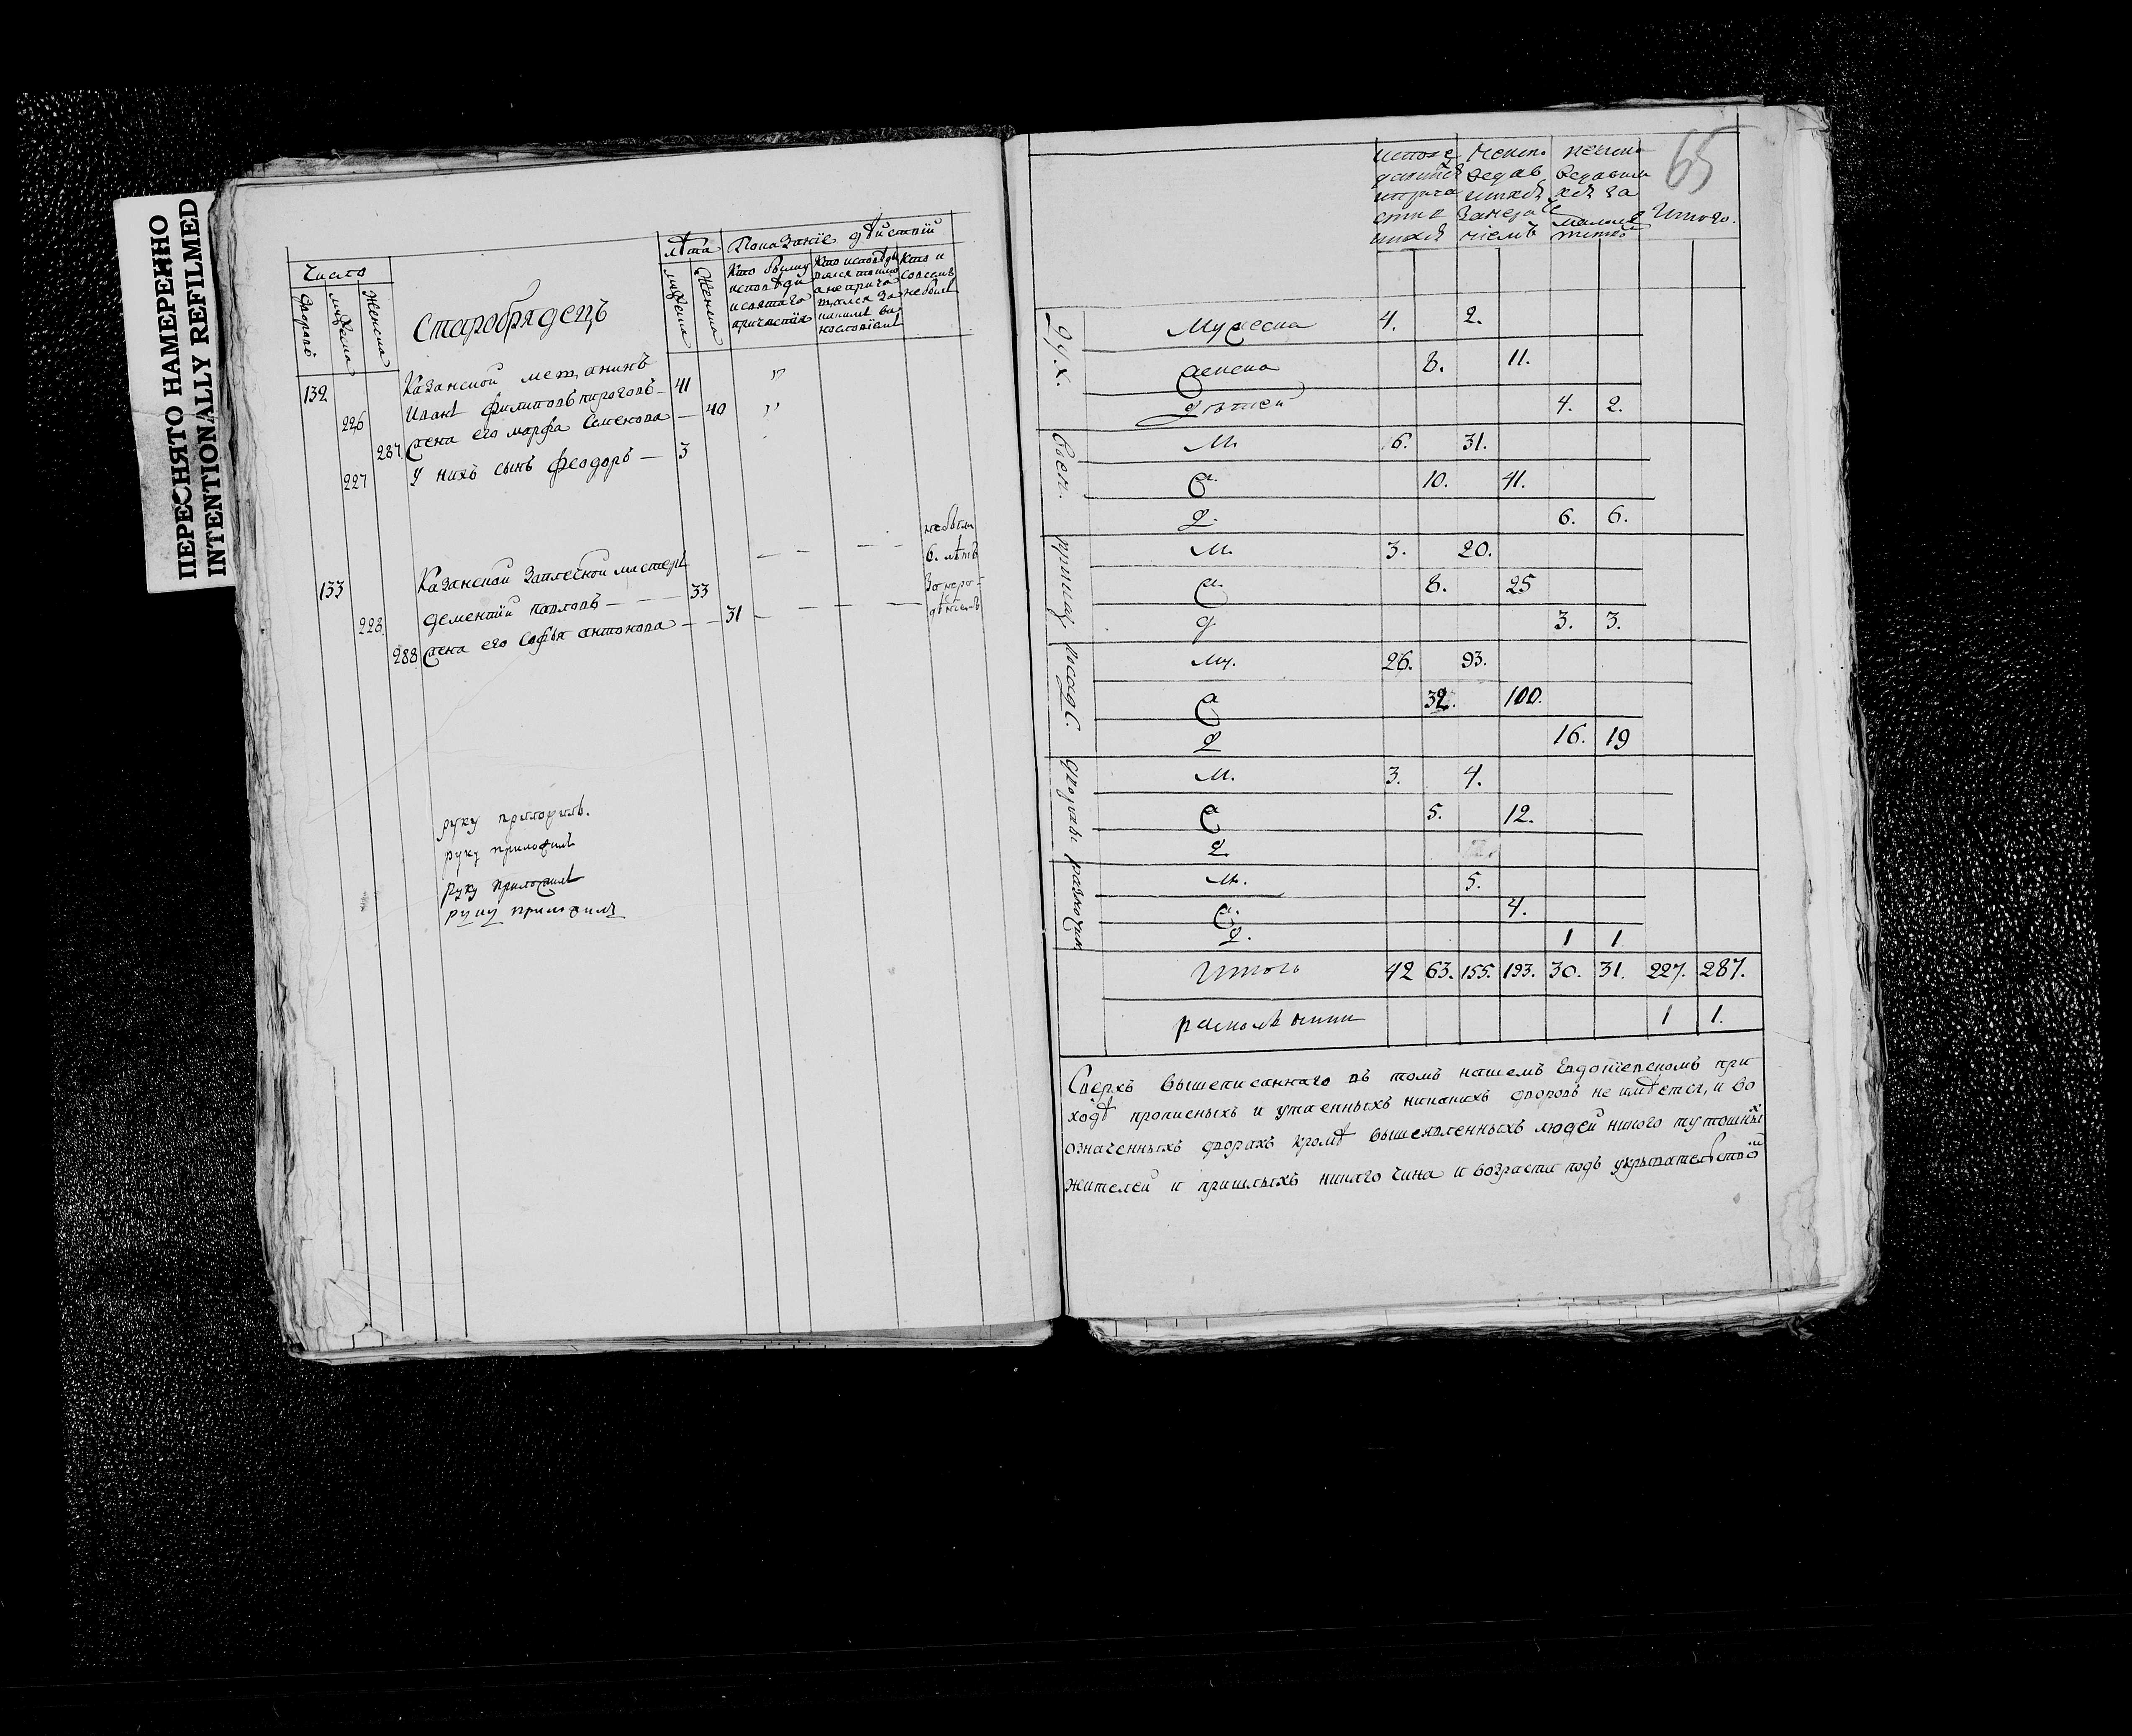 ПЕРЕСНЯТО НАМЕРЕННО
INTENTIONALLY REFILMED
Число
дворовъ
мужеска
Женска
Старобрядецъ
лѣта
мужеска
Женска
Показанїе дѣйствїй
Кто были у
исповѣди
и святаго
причастїя
Кто исповѣды
вался токмо
а неприча
щался
Кто и
совсемъ
небылъ
132
Казанской мещанинъ
226 Иванъ Филиповъ пироговъ 41 "
287 Жена его марфа Семенова — 40 "
227 У нихъ сынъ Феодоръ — 3
133 Казанской Заплечной мастеръ
228. дементїй павловъ — 33
288 Жена его Софья антонова — 31
небыли
6. лѣтъ
За нера-
дѣнїемъ
руку приложилъ.
руку приложилъ
руку приложилъ
руку приложилъ
65
испове
давшїхся
и прича
стив
шихся
неиспо
ведав
шихся
За нерад
нїемъ
неиспо
ведавши
хся за
малолѣ
тств
Итого.
Дух.
Мужеска 4. 2.
Женска 8. 11.
дѣтей 4. 2.
Воен.
м. 6. 31.
ж. 10. 41.
д. 6. 6.
приказ
м. 3. 20.
ж. 8. 25
д. 3. 3.
посадс.
му. 26. 93.
ж 32. 100.
д 16. 19
дворов
м. 3. 4.
ж 5. 12.
д.
разночин
м. 5.
ж. 4.
д. 1 1
Итого 42 63. 155. 193. 30. 31. 227. 287.
раскольники 1 1.
Сверхъ вышеписаннаго въ томъ нашемъ Евдокїевскомъ при
ходѣ прописныхъ и утаенныхъ никакихъ дворовъ не имѣется, и во
означенныхъ дворахъ кромѣ вышеявленныхъ людей никого тутошныхъ
жителей и пришлыхъ никаго чина и возраста подъ укрывательством